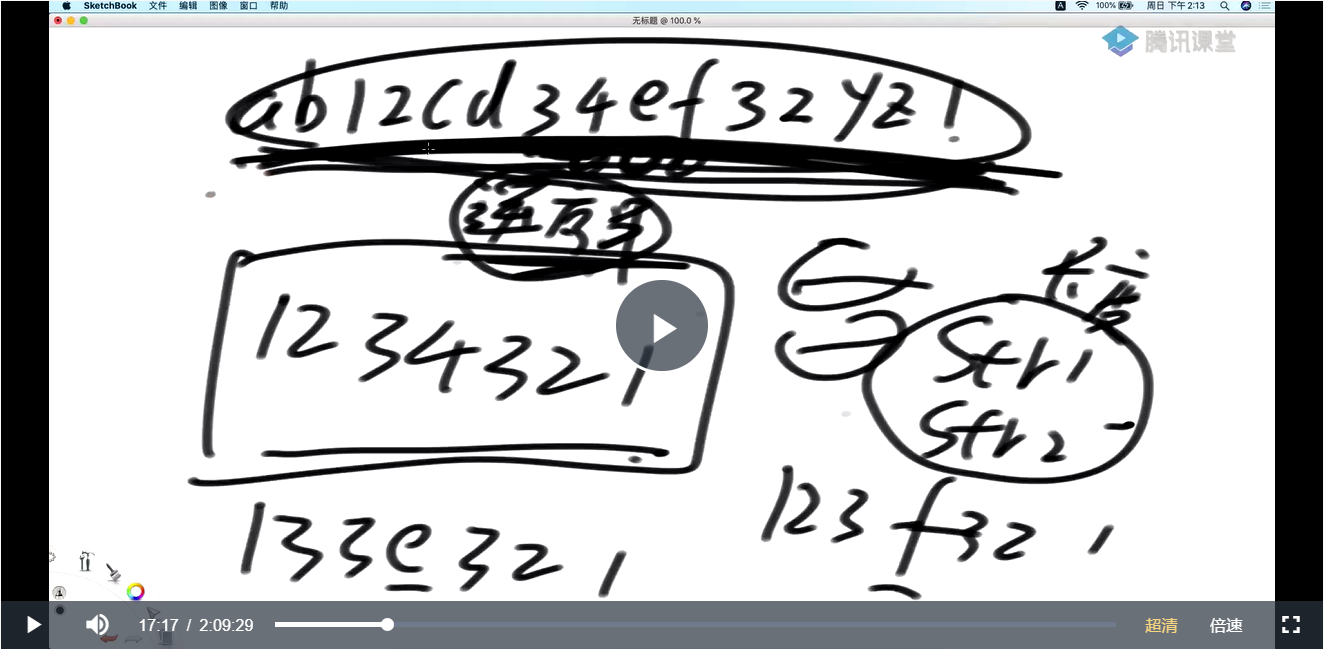 SketchBook 文件 编辑 图像 窗口 帮助
A 100% 周日 下午2:13
无标题 @ 100.0 %
腾讯课堂
ab12cd34ef32yz1
长度
1234321
Str1
Str2
133e321
123f321
17:17 / 2:09:29 超清 倍速